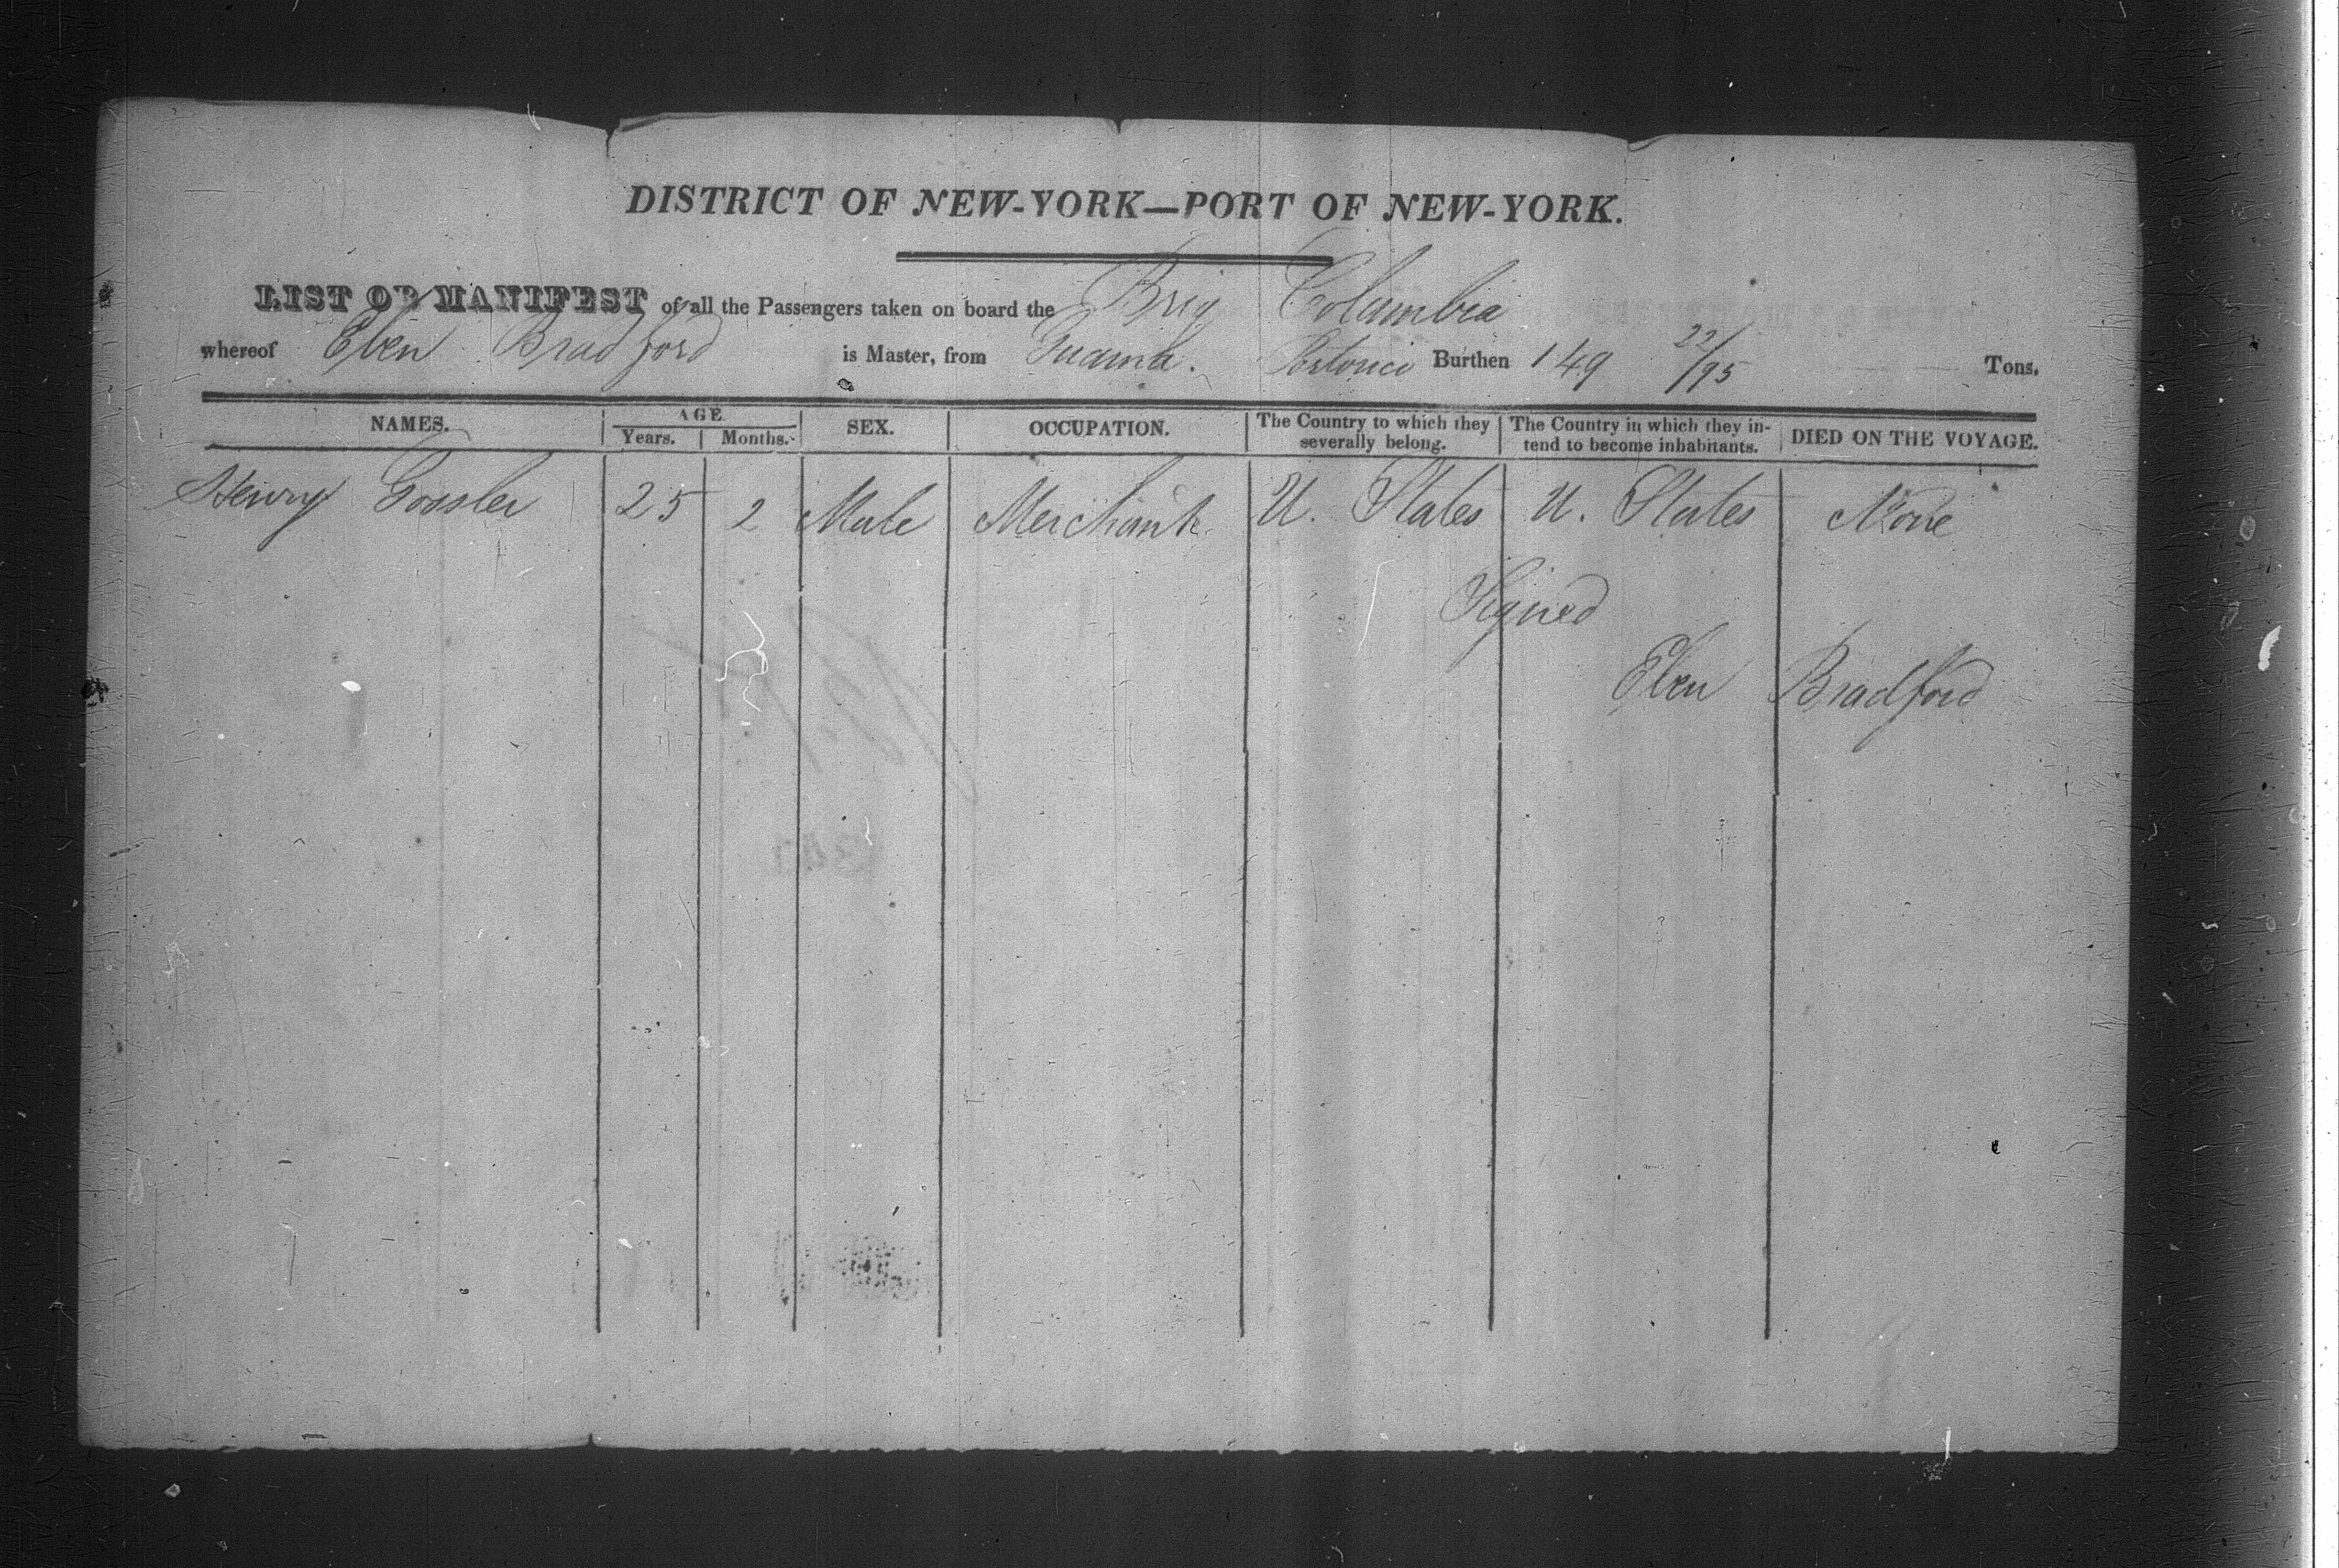 DISTRICT OF NEW-YORK—PORT OF NEW-YORK.
LIST OR MANIFEST of all the Passengers taken on board the Brig Columbia
whereof Eben Bradford is Master, from Guama. Portorico Burthen 149 22/95 Tons.
NAMES. AGE. Years. Months. SEX. OCCUPATION. The Country to which they severally belong. The Country in which they in- tend to become inhabitants. DIED ON THE VOYAGE.
Henry Gossler 25 2 Male Merchant U. States U. States None
Signed
Eben Bradford